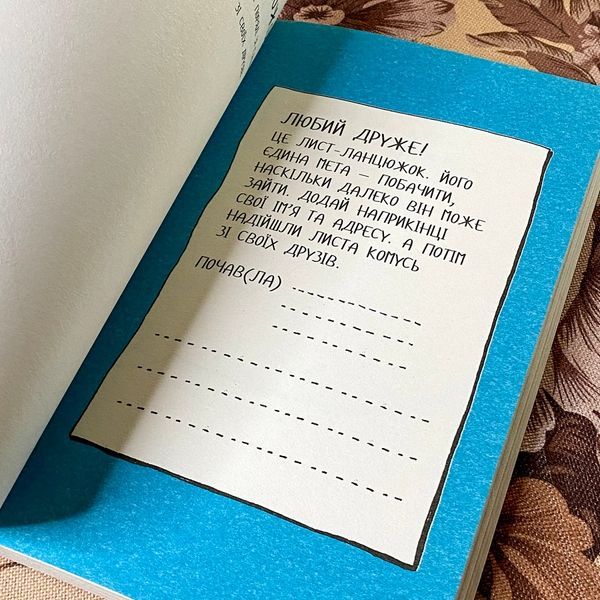 ЛЮБИЙ ДРУЖЕ!
ЦЕ ЛИСТ-ЛАНЦЮЖОК. ЙОГО
ЄДИНА МЕТА — ПОБАЧИТИ,
НАСКІЛЬКИ ДАЛЕКО ВІН МОЖЕ
ЗАЙТИ. ДОДАЙ НАПРИКІНЦІ
СВОЇ ІМ'Я ТА АДРЕСУ. А ПОТІМ
НАДІЙШЛИ ЛИСТА КОМУСЬ
ЗІ СВОЇХ ДРУЗІВ.
ПОЧАВ(ЛА)